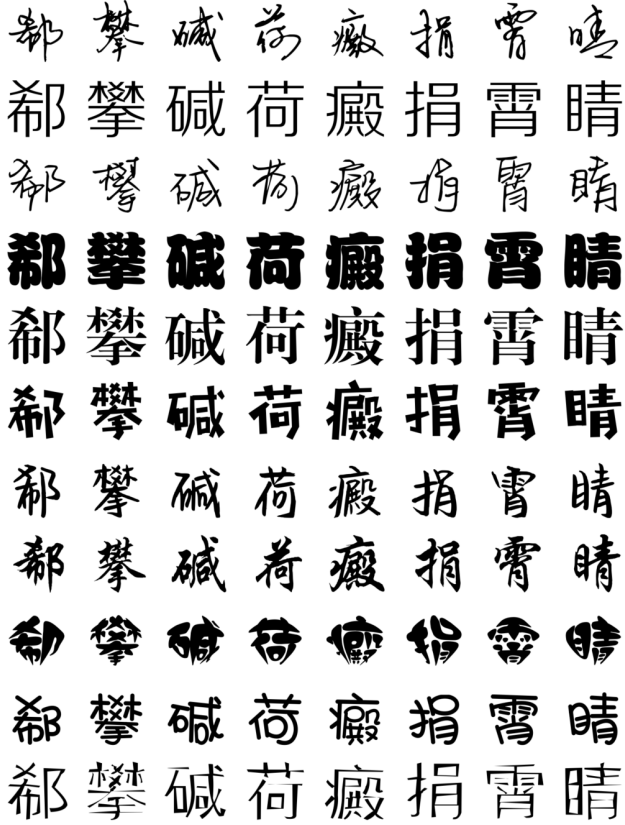 郗攀碱荷癜捐霄睛
郗攀碱荷癜捐霄睛
郗攀碱荷癜捐霄睛
郗攀碱荷癜捐霄睛
郗攀碱荷癜捐霄睛
郗攀碱荷癜捐霄睛
郗攀碱荷癜捐霄睛
郗攀碱荷癜捐霄睛
郗攀碱荷癜捐霄睛
郗攀碱荷癜捐霄睛
郗攀碱荷癜捐霄睛